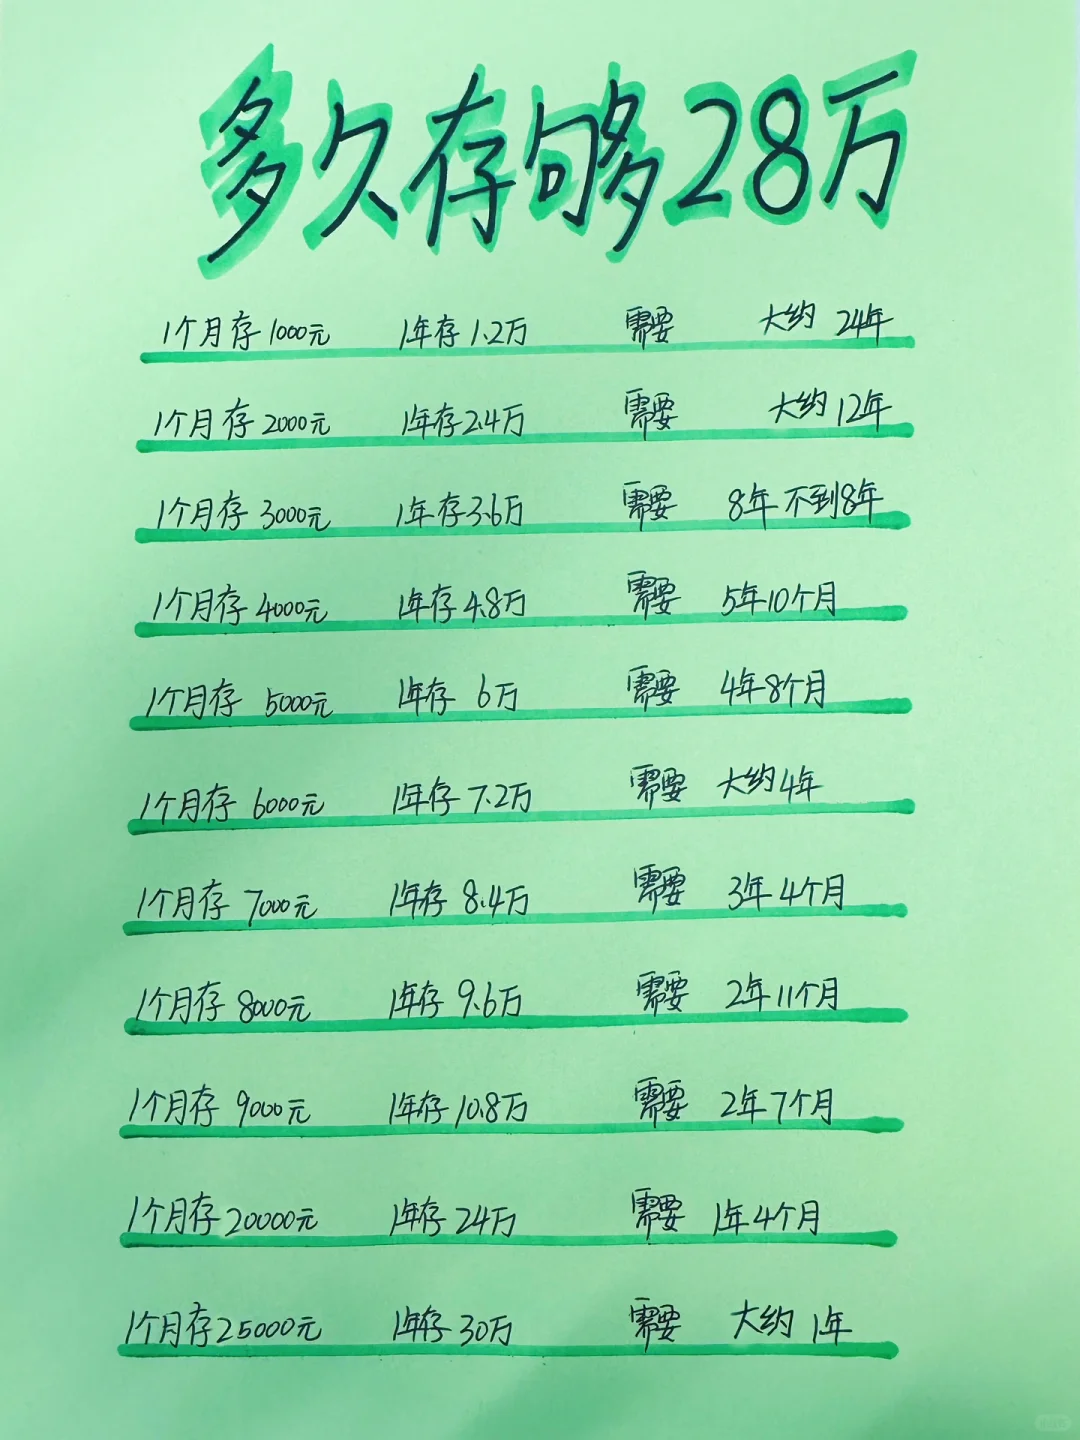 多久存够28万
1个月存1000元 1年存1.2万 需要 大约24年
1个月存2000元 1年存2.4万 需要 大约12年
1个月存3000元 1年存3.6万 需要 8年不到8年
1个月存4000元 1年存4.8万 需要 5年10个月
1个月存5000元 1年存6万 需要 4年8个月
1个月存6000元 1年存7.2万 需要 大约4年
1个月存7000元 1年存8.4万 需要 3年4个月
1个月存8000元 1年存9.6万 需要 2年11个月
1个月存9000元 1年存10.8万 需要 2年7个月
1个月存20000元 1年存24万 需要 1年4个月
1个月存25000元 1年存30万 需要 大约1年